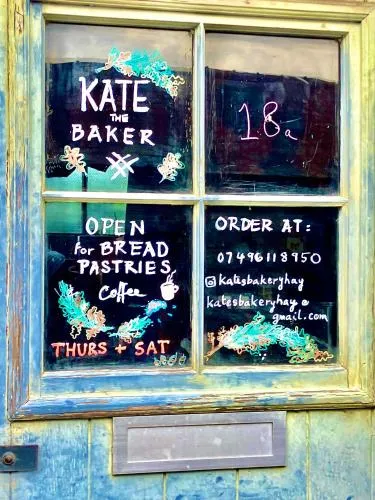 KATE
THE
BAKER
18a
OPEN
for BREAD
PASTRIES
Coffee
THURS + SAT
ORDER AT:
07496118950
@katesbakeryhay
katesbakeryhay@
gmail.com